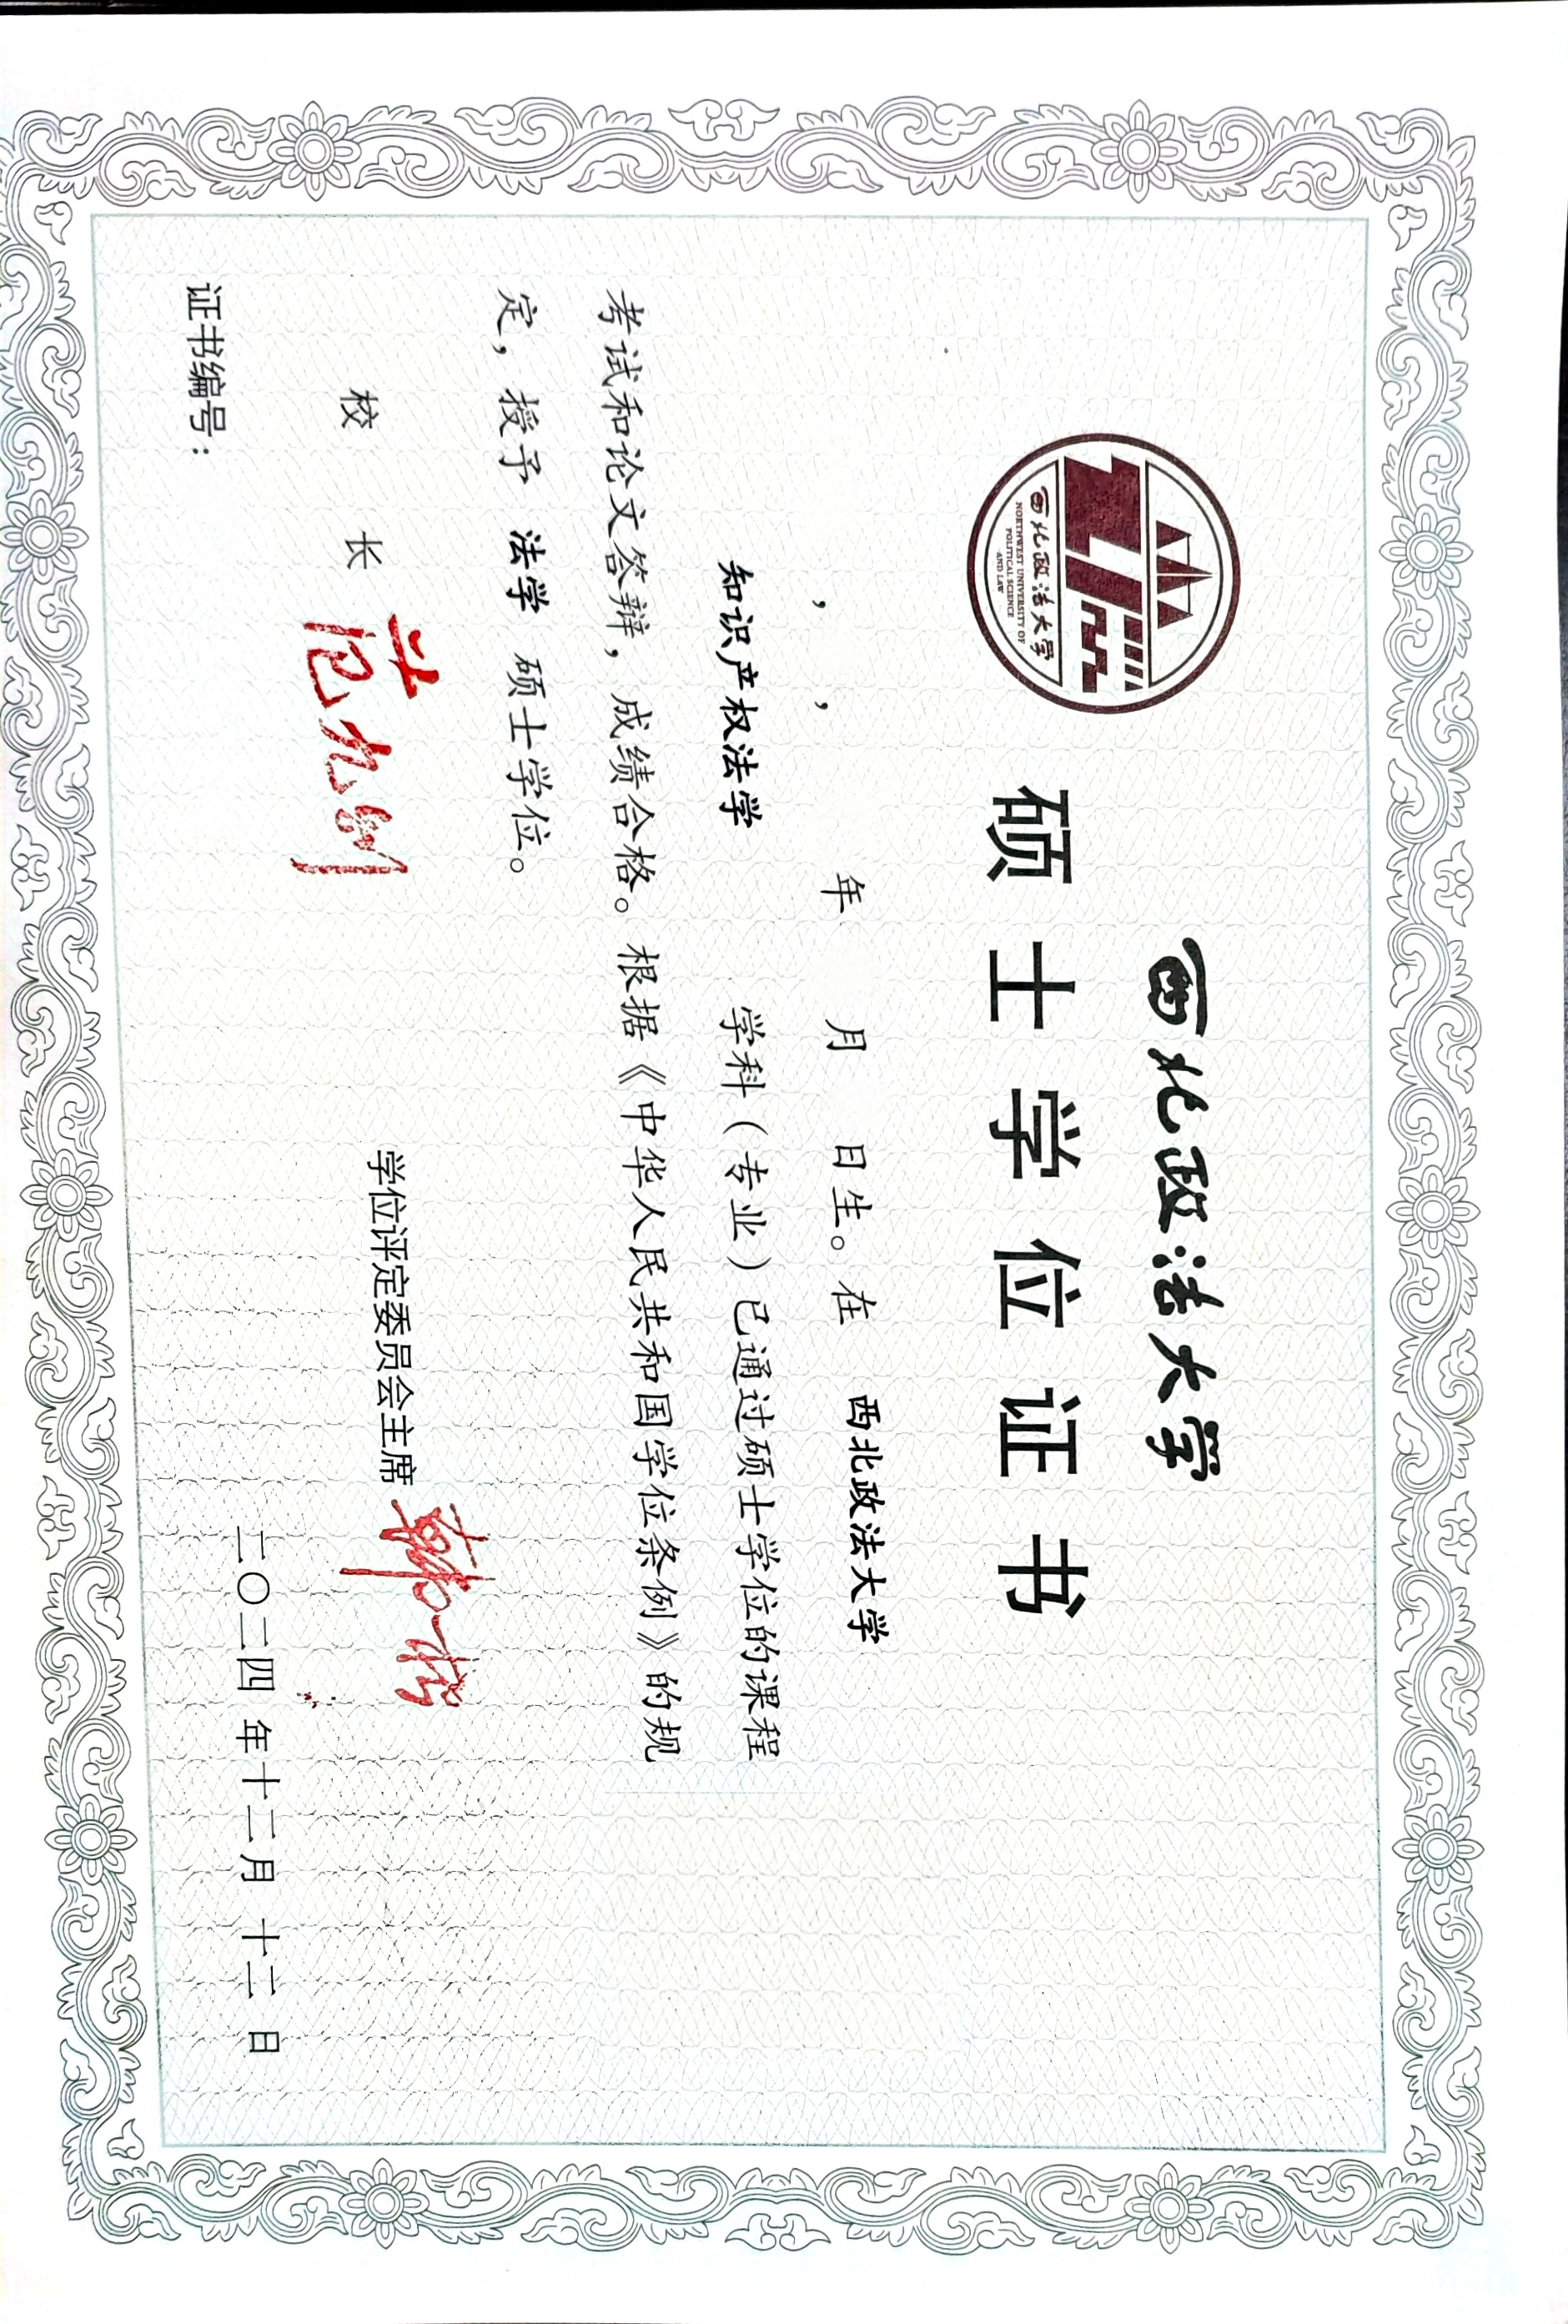 西北政法大学
NORTHWEST UNIVERSITY OF
POLITICAL SCIENCE
AND LAW
西北政法大学
硕士学位证书
， ， 年 月 日生。在 西北政法大学
知识产权法学 学科（专业）已通过硕士学位的课程
考试和论文答辩，成绩合格。根据《中华人民共和国学位条例》的规
定，授予 法学 硕士学位。
校 长 范九利
学位评定委员会主席 韩松
证书编号：
二〇二四 年 十二 月 十二 日